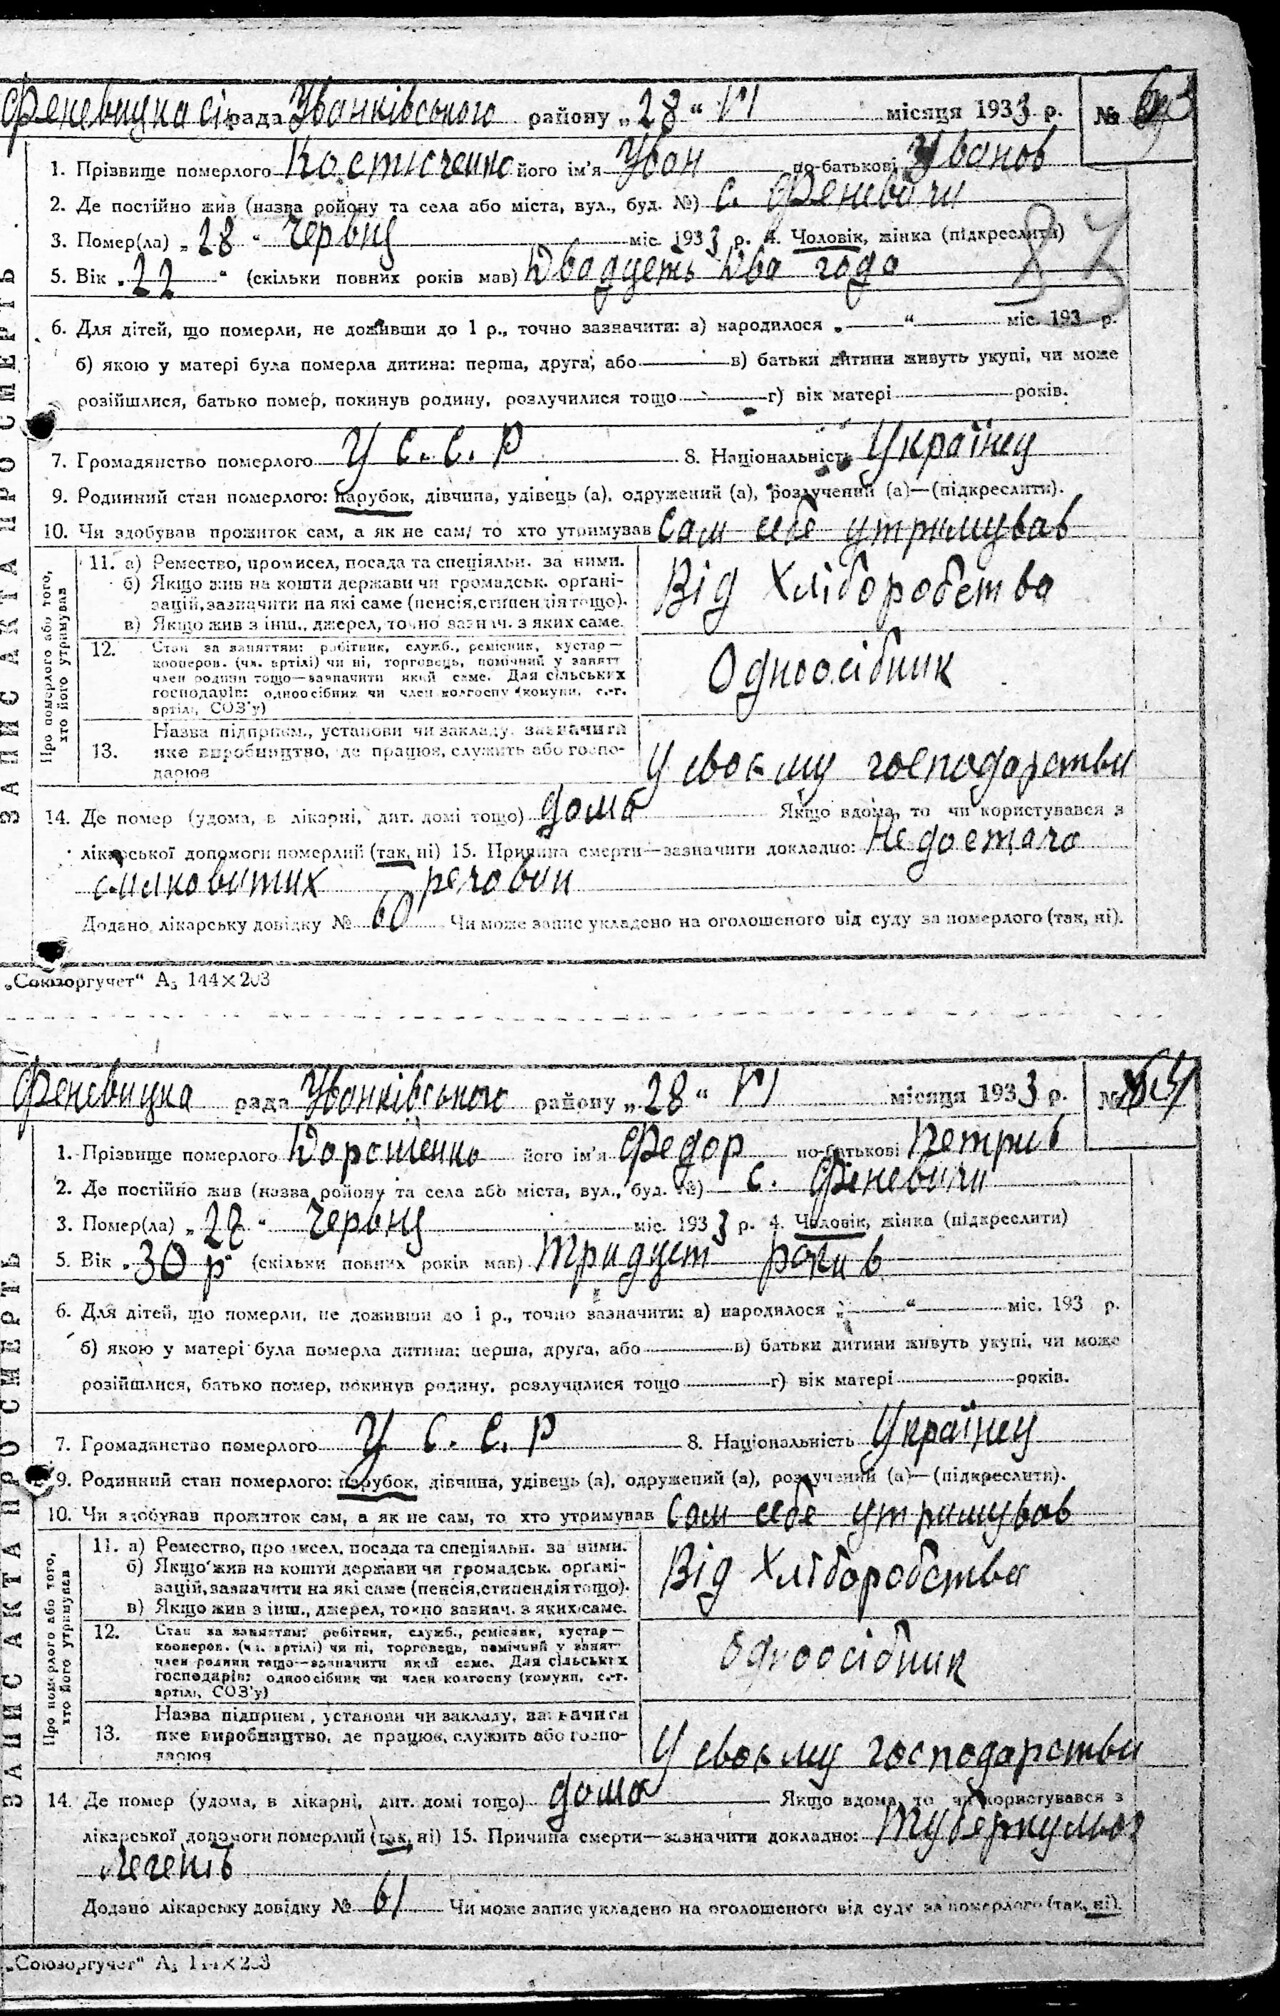 Феневицка сіврада Уванківського району „28“ VI місяця 1933 р. № 63
1. Прізвище померлого Костюченко його ім'я Уван по-батькові Уванов
2. Де постійно жив (назва району та села або міста, вул., буд. №) с. Феневичи
3. Помер(ла) „28“ Червня міс. 1933 р. 4. Чоловік, жінка (підкреслити)
83
5. Вік „22“ (скільки повних років мав) Двадцеть Два года
6. Для дітей, що померли, не доживши до 1 р., точно зазначити: а) народилося „ “ міс. 193 р.
б) якою у матері була померла дитина: перша, друга, або в) батьки дитини живуть укупі, чи може
розійшлися, батько помер, покинув родину, розлучилися тощо г) вік матері років.
7. Громадянство померлого У С. С. Р 8. Національність Українец
9. Родинний стан померлого: парубок, дівчина, удівець (а), одружений (а), розлучений (а)—(підкреслити).
10. Чи здобував прожиток сам, а як не сам, то хто утримував Сам себе утримував
ЗАПИС АКТА ПРО СМЕРТЬ
Про померлого або того, хто його утримував
11. а) Ремество, промисел, посада та спеціяльн. за ними.
б) Якщо жив на кошти держави чи громадськ. органі-
зацій, зазначити на які саме (пенсія, стипендія тощо).
в) Якщо жив з інш., джерел, точно зазнач. з яких саме.
Від Хліборобства
12. Стан за заняттям: робітник, служб., ремісник, кустар—
кооперов. (чл. артілі) чи ні, торговець, помічний у занят.
член родини тощо—зазначити який саме. Для сільських
господарів: одноосібник чи член колгоспу (комуни, с.-г.
артілі, СОЗ'у)
Одноосібник
13. Назва підприєм., установи чи закладу, зазначити
яке виробництво, де працює, служить або госпо-
дарює
У своєму господарстви
14. Де помер (удома, в лікарні, дит. домі тощо) дома Якщо вдома, то чи користувався з
лікарської допомоги померлий (так, ні) 15. Причина смерти—зазначити докладно: Не достача
речовин
Додано лікарську довідку № 60 Чи може запис укладено на оголошеного від суду за померлого (так, ні).
„Союзоргучет“ А₅ 144×203
Феневицка рада Уванківського району „28“ VI місяця 1933 р. № 64
1. Прізвище померлого Дорошенко його ім'я Федор по-батькові Петрив
2. Де постійно жив (назва району та села або міста, вул., буд. №) с. Феневичи
3. Помер(ла) „28“ Червня міс. 1933 р. 4. Чоловік, жінка (підкреслити)
5. Вік „30 р“ (скільки повних років мав) Тридцет рокив
6. Для дітей, що померли, не доживши до 1 р., точно зазначити: а) народилося „ “ міс. 193 р.
б) якою у матері була померла дитина: перша, друга, або в) батьки дитини живуть укупі, чи може
розійшлися, батько помер, покинув родину, розлучилися тощо г) вік матері років.
7. Громадянство померлого У С. С. Р 8. Національність Українец
9. Родинний стан померлого: парубок, дівчина, удівець (а), одружений (а), розлучений (а)—(підкреслити).
10. Чи здобував прожиток сам, а як не сам, то хто утримував Сам себе утримував
ЗАПИС АКТА ПРО СМЕРТЬ
Про померлого або того, хто його утримував
11. а) Ремество, промисел, посада та спеціяльн. за ними.
б) Якщо жив на кошти держави чи громадськ. органі-
зацій, зазначити на які саме (пенсія, стипендія тощо).
в) Якщо жив з інш., джерел, точно зазнач. з яких саме.
Від Хліборобства
12. Стан за заняттям: робітник, служб., ремісник, кустар—
кооперов. (чл. артілі) чи ні, торговець, помічний у занят.
член родини тощо—зазначити який саме. Для сільських
господарів: одноосібник чи член колгоспу (комуни, с.-г.
артілі, СОЗ'у)
Одноосібник
13. Назва підприєм., установи чи закладу, зазначити
яке виробництво, де працює, служить або госпо-
дарює
У своєму господарстви
14. Де помер (удома, в лікарні, дит. домі тощо) дома Якщо вдома, то чи користувався з
лікарської допомоги померлий (так, ні) 15. Причина смерти—зазначити докладно: Туберкульоз
легенів
Додано лікарську довідку № 61 Чи може запис укладено на оголошеного від суду за померлого (так, ні).
„Союзоргучет“ А₅ 144×203